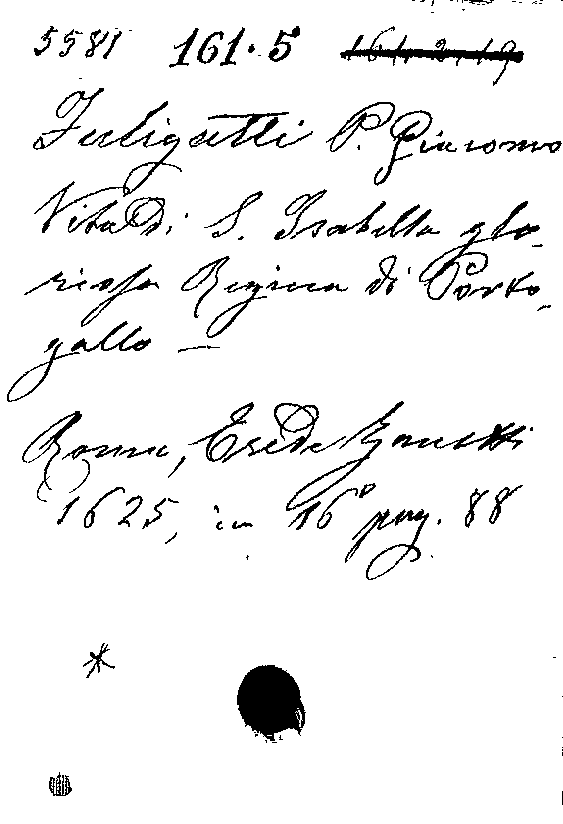 5581 161.5 161.2.19
Fuligatti P. Giacomo
Vita di S. Isabella glo-
riosa Regina di Porto-
gallo —
Roma, Erede Zanetti
1625, in 16° pag. 88
*